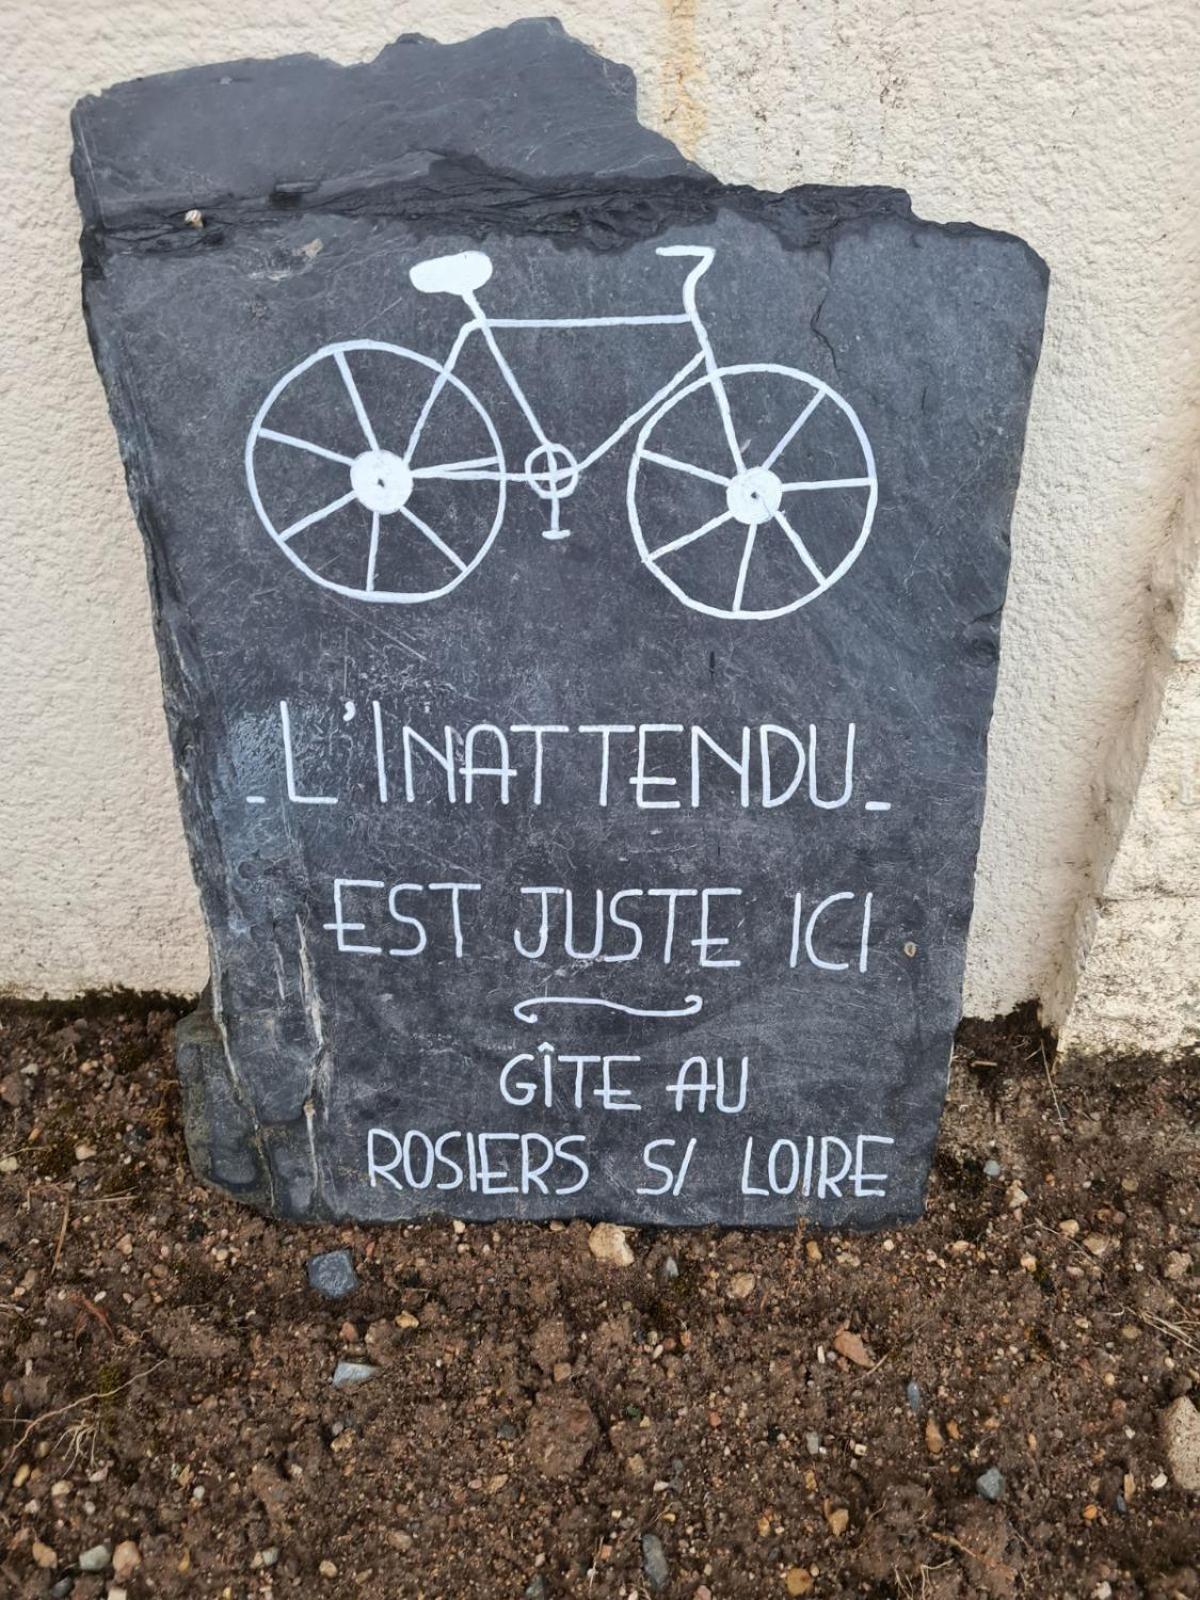 - L'INATTENDU -
EST JUSTE ICI
GÎTE AU
ROSIERS S/ LOIRE